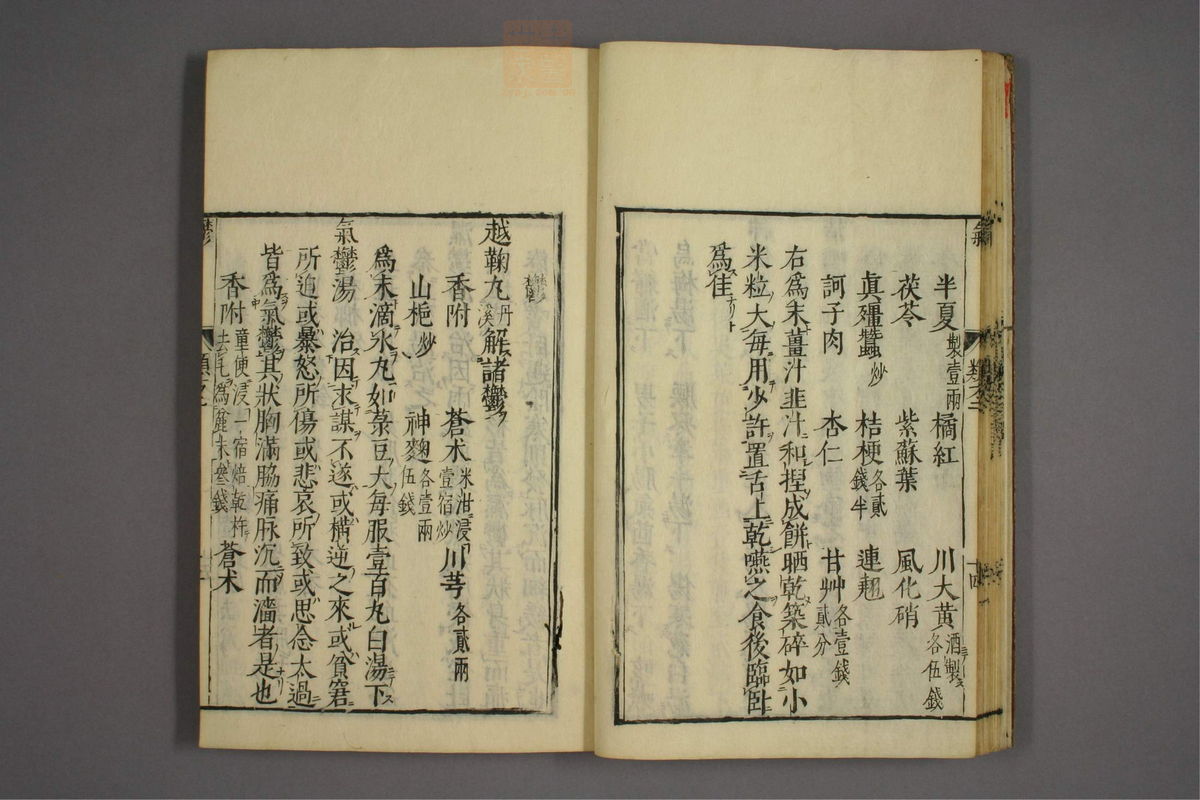 半夏製壹兩 橘紅 川大黄酒製各伍錢
茯苓 紫蘇葉 風化硝
眞殭蠶炒 桔梗各貳錢半 連翹
訶子肉 杏仁 甘艸各壹錢貳分
右爲末薑汁韭汁和揑成餅晒乾築碎如小
米粒大每用少許置舌上乾嚥之食後臨臥
爲佳ナリト
欝
越鞠丸丹溪解諸欝ヲ
香附 蒼术米泔浸壹宿炒 川芎各貳兩
山梔炒 神麯各壹兩伍錢
爲末滴水丸如菉豆大每服壹百丸白湯下
氣欝湯 治因求謀不遂或横逆之來或貧窘
所迫或暴怒所傷或悲哀所致或思念太過
皆爲氣欝其狀胸滿脇痛脉沉而濇者是也
香附童便浸一宿焙乾杵去毛爲麄末叄錢 蒼术